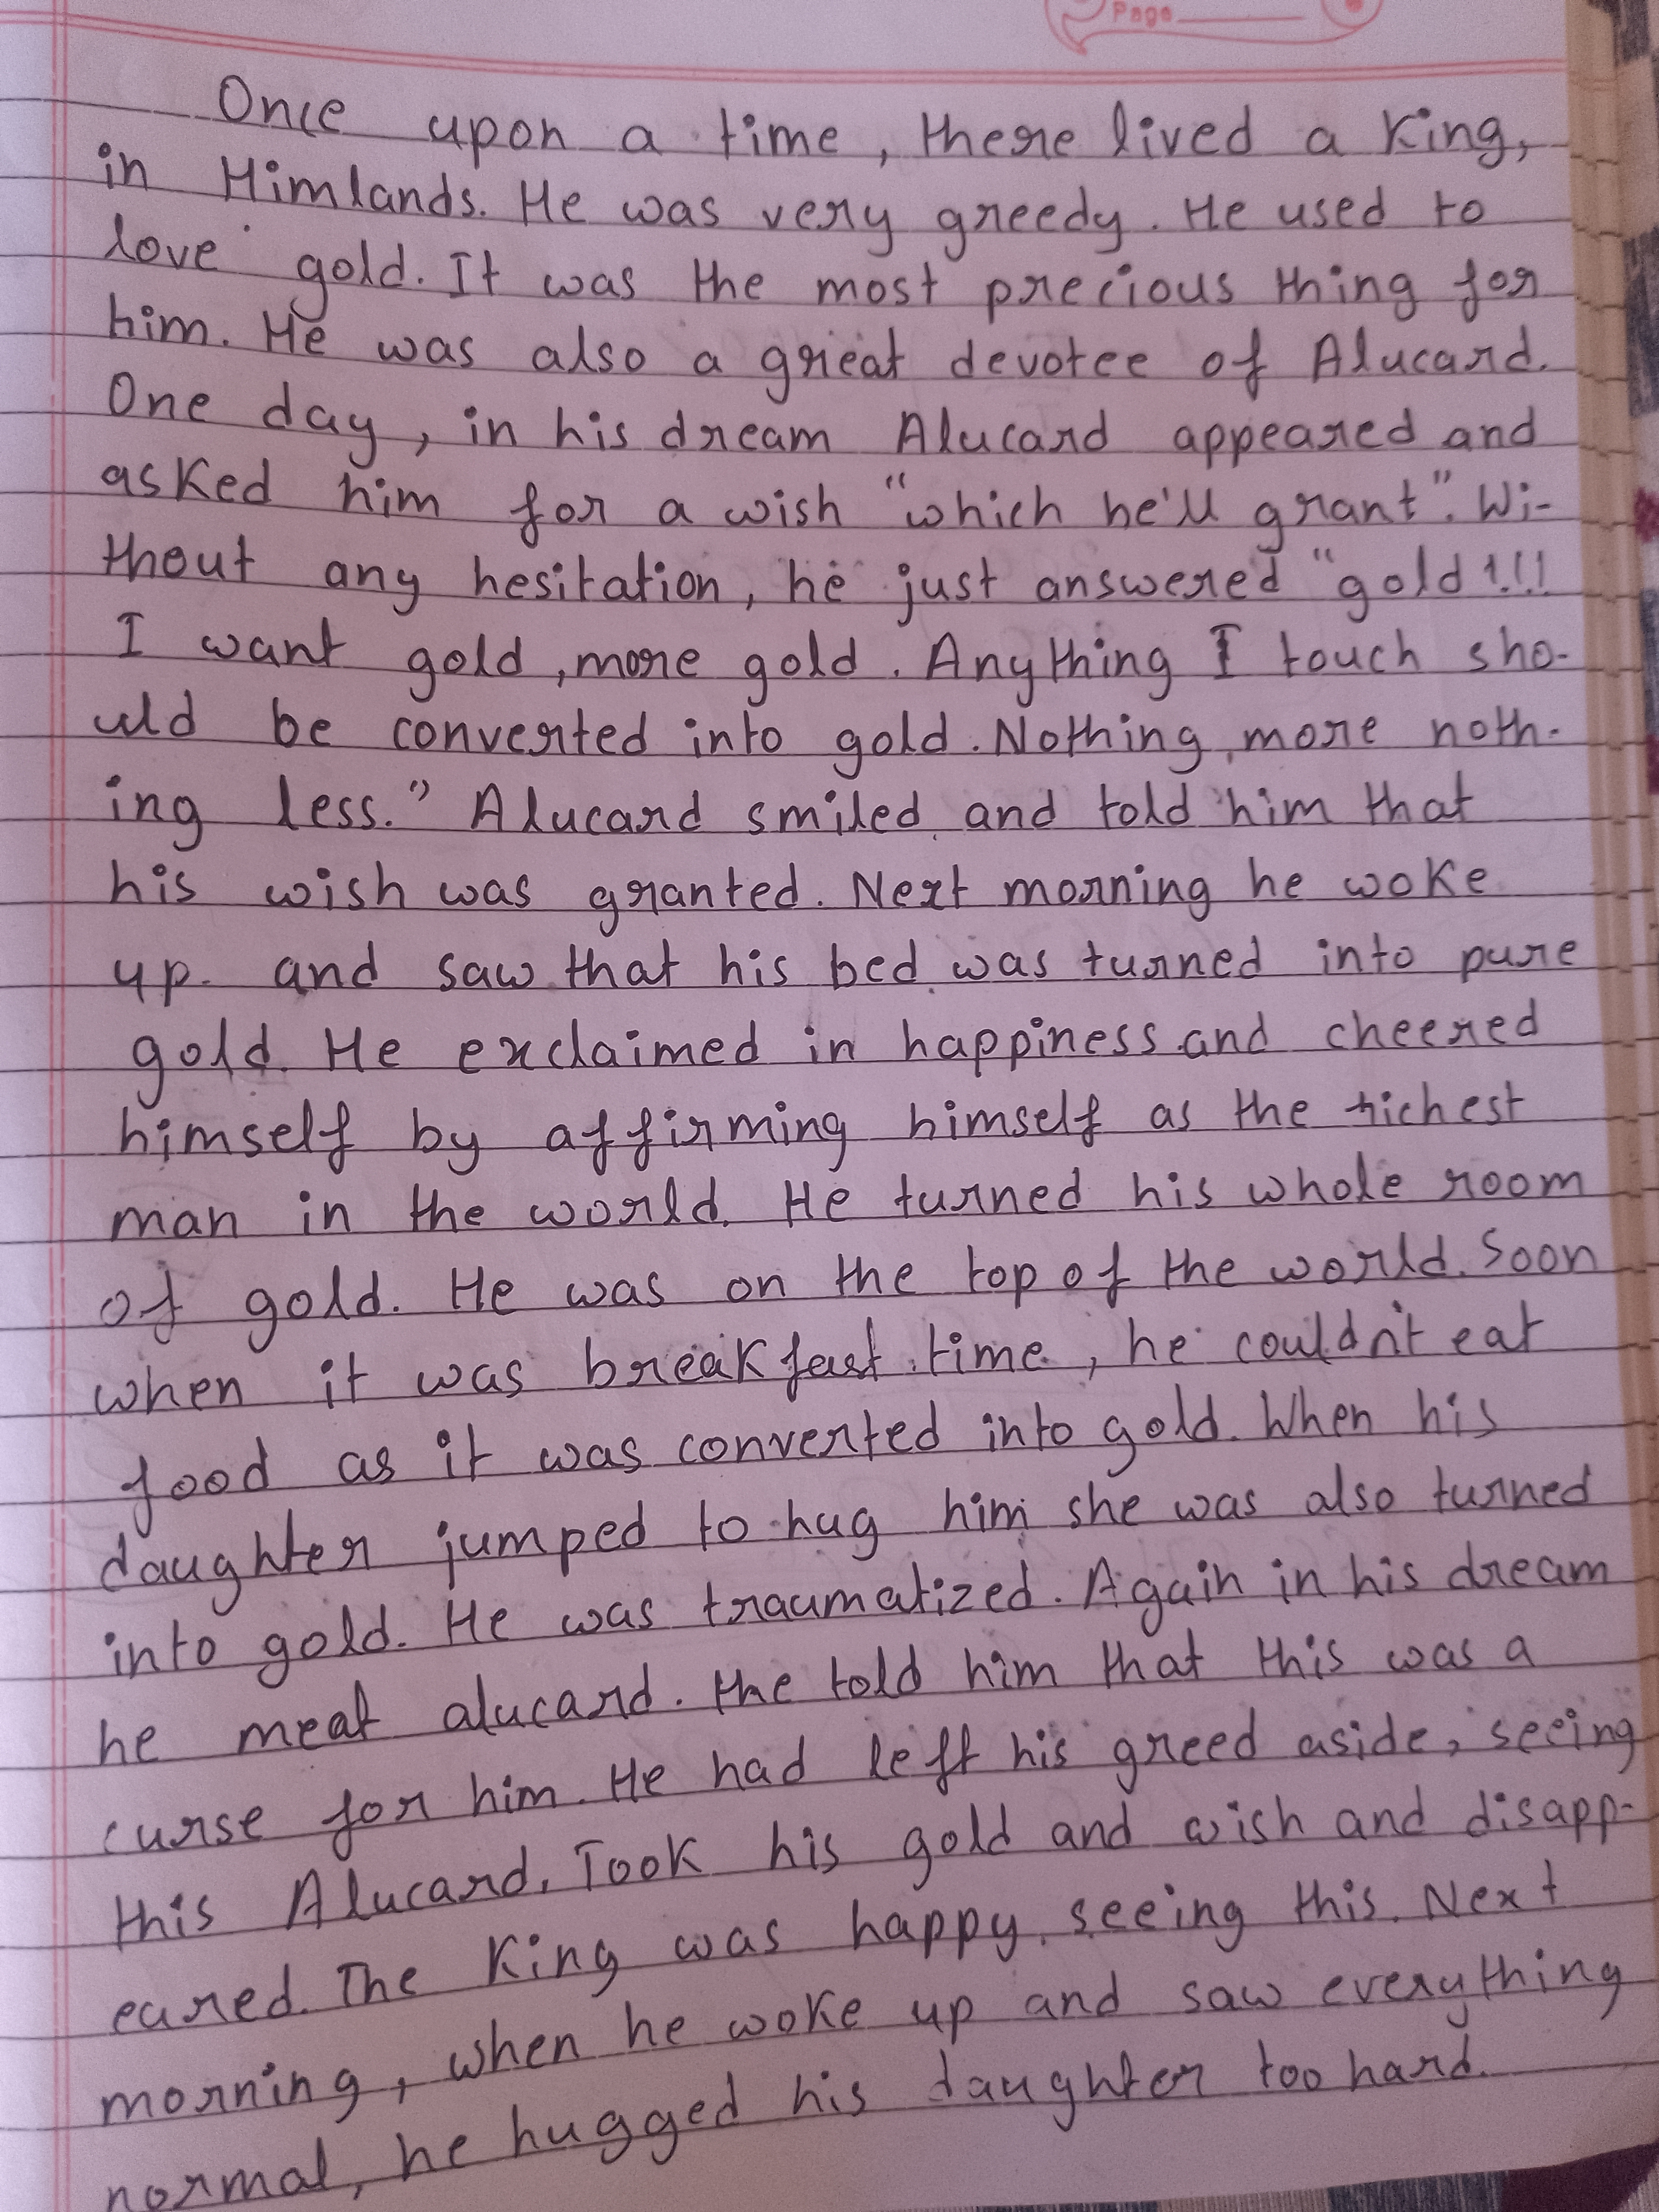 Page
Once upon a time, there lived a King,
in Himlands. He was very greedy. He used to
love gold. It was the most precious thing for
him. He was also a great devotee of Alucard.
One day, in his dream Alucard appeared and
asked him for a wish "which he'll grant". Wi-
thout any hesitation, he just answered "gold!!!
I want gold, more gold. Anything I touch sho-
uld be converted into gold. Nothing more noth-
ing less." Alucard smiled and told him that
his wish was granted. Next morning he woke
up. and saw that his bed was turned into pure
gold. He exclaimed in happiness and cheered
himself by affirming himself as the richest
man in the world. He turned his whole room
of gold. He was on the top of the world. Soon
when it was breakfast time, he couldn't eat
food as it was converted into gold. When his
daughter jumped to hug him she was also turned
into gold. He was traumatized. Again in his dream
he meat alucard. He told him that this was a
curse for him. He had left his greed aside, seeing
this Alucard. Took his gold and wish and disapp-
eared. The King was happy seeing this. Next
morning, when he woke up and saw everything
normal, he hugged his daughter too hard.